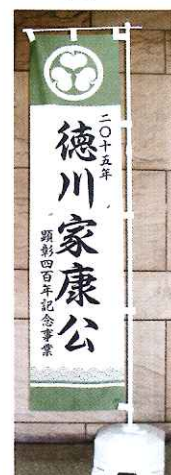 二〇十五年
徳川家康公
顕彰四百年記念事業